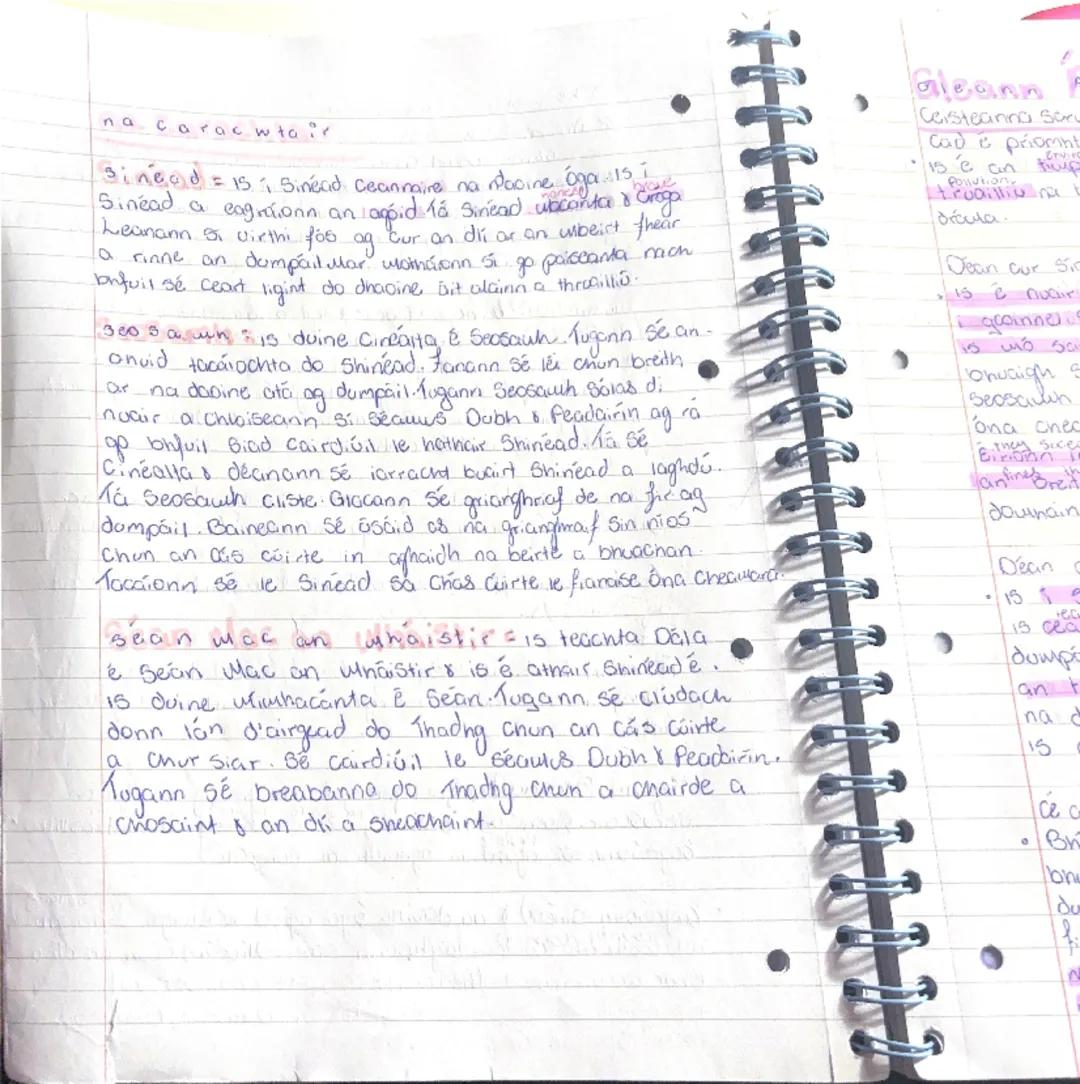 na carachtair
Sinéad = is í Sinéad Ceannaire na Daoine Óga. Is í
honest brave
Sinéad a eagraíonn an agóid Tá Sinéad macánta & cróga
Leanann sí uirthi fós ag cur an dlí ar an mbeirt fhear
a rinne an dumpáil mar mothaíonn sí go paiseanta nach
bhfuil sé ceart ligint do dhaoine áit álainn a thruailliú.
Seosamh = is duine cineálta é Seosamh. Tugann sé an-
chuid tacaíochta do Shinéad. Fanann sé léi chun breith
ar na daoine atá ag dumpáil. Tugann Seosamh Sólás di
nuair a chloiseann sí Séamus Dubh & Peadairín ag rá
go bhfuil siad cairdiúil le hathair Shinéad. Tá sé
cineálta & déanann sé iarracht buairt Shinéad a laghdú.
Tá Seosamh cliste. Glacann sé grianghraf de na fir ag
dumpáil. Baineann sé úsáid as na grianghraf sin níos
chun an cás cúirte in aghaidh na beirte a bhuachan.
Tacaíonn sé le Sinéad sa chás cúirte le fianaise óna cheamara.
Séan Mac an Mháistir = is teachta Dála
é Seán Mac an Mháistir & is é athair Shinéad é.
is duine mímhacánta é Seán. Tugann sé clúdach
donn lán d'airgead do Thadhg chun an cás cúirte
a chur siar. Sé cairdiúil le Séamus Dubh & Peadairín.
Tugann sé breabanna do Thadhg chun a chairde a
chosaint & an dlí a sheachaint.
Gleann
Ceisteanna
Cad é príomht
is é an
pollution
truailliú na
drécula.
Déan cur
is é nuair
is mó
Seosamh
óna
domhain
Déan
is í
is
dumpá
an
na d
is
Cé
Bhí
bh
du